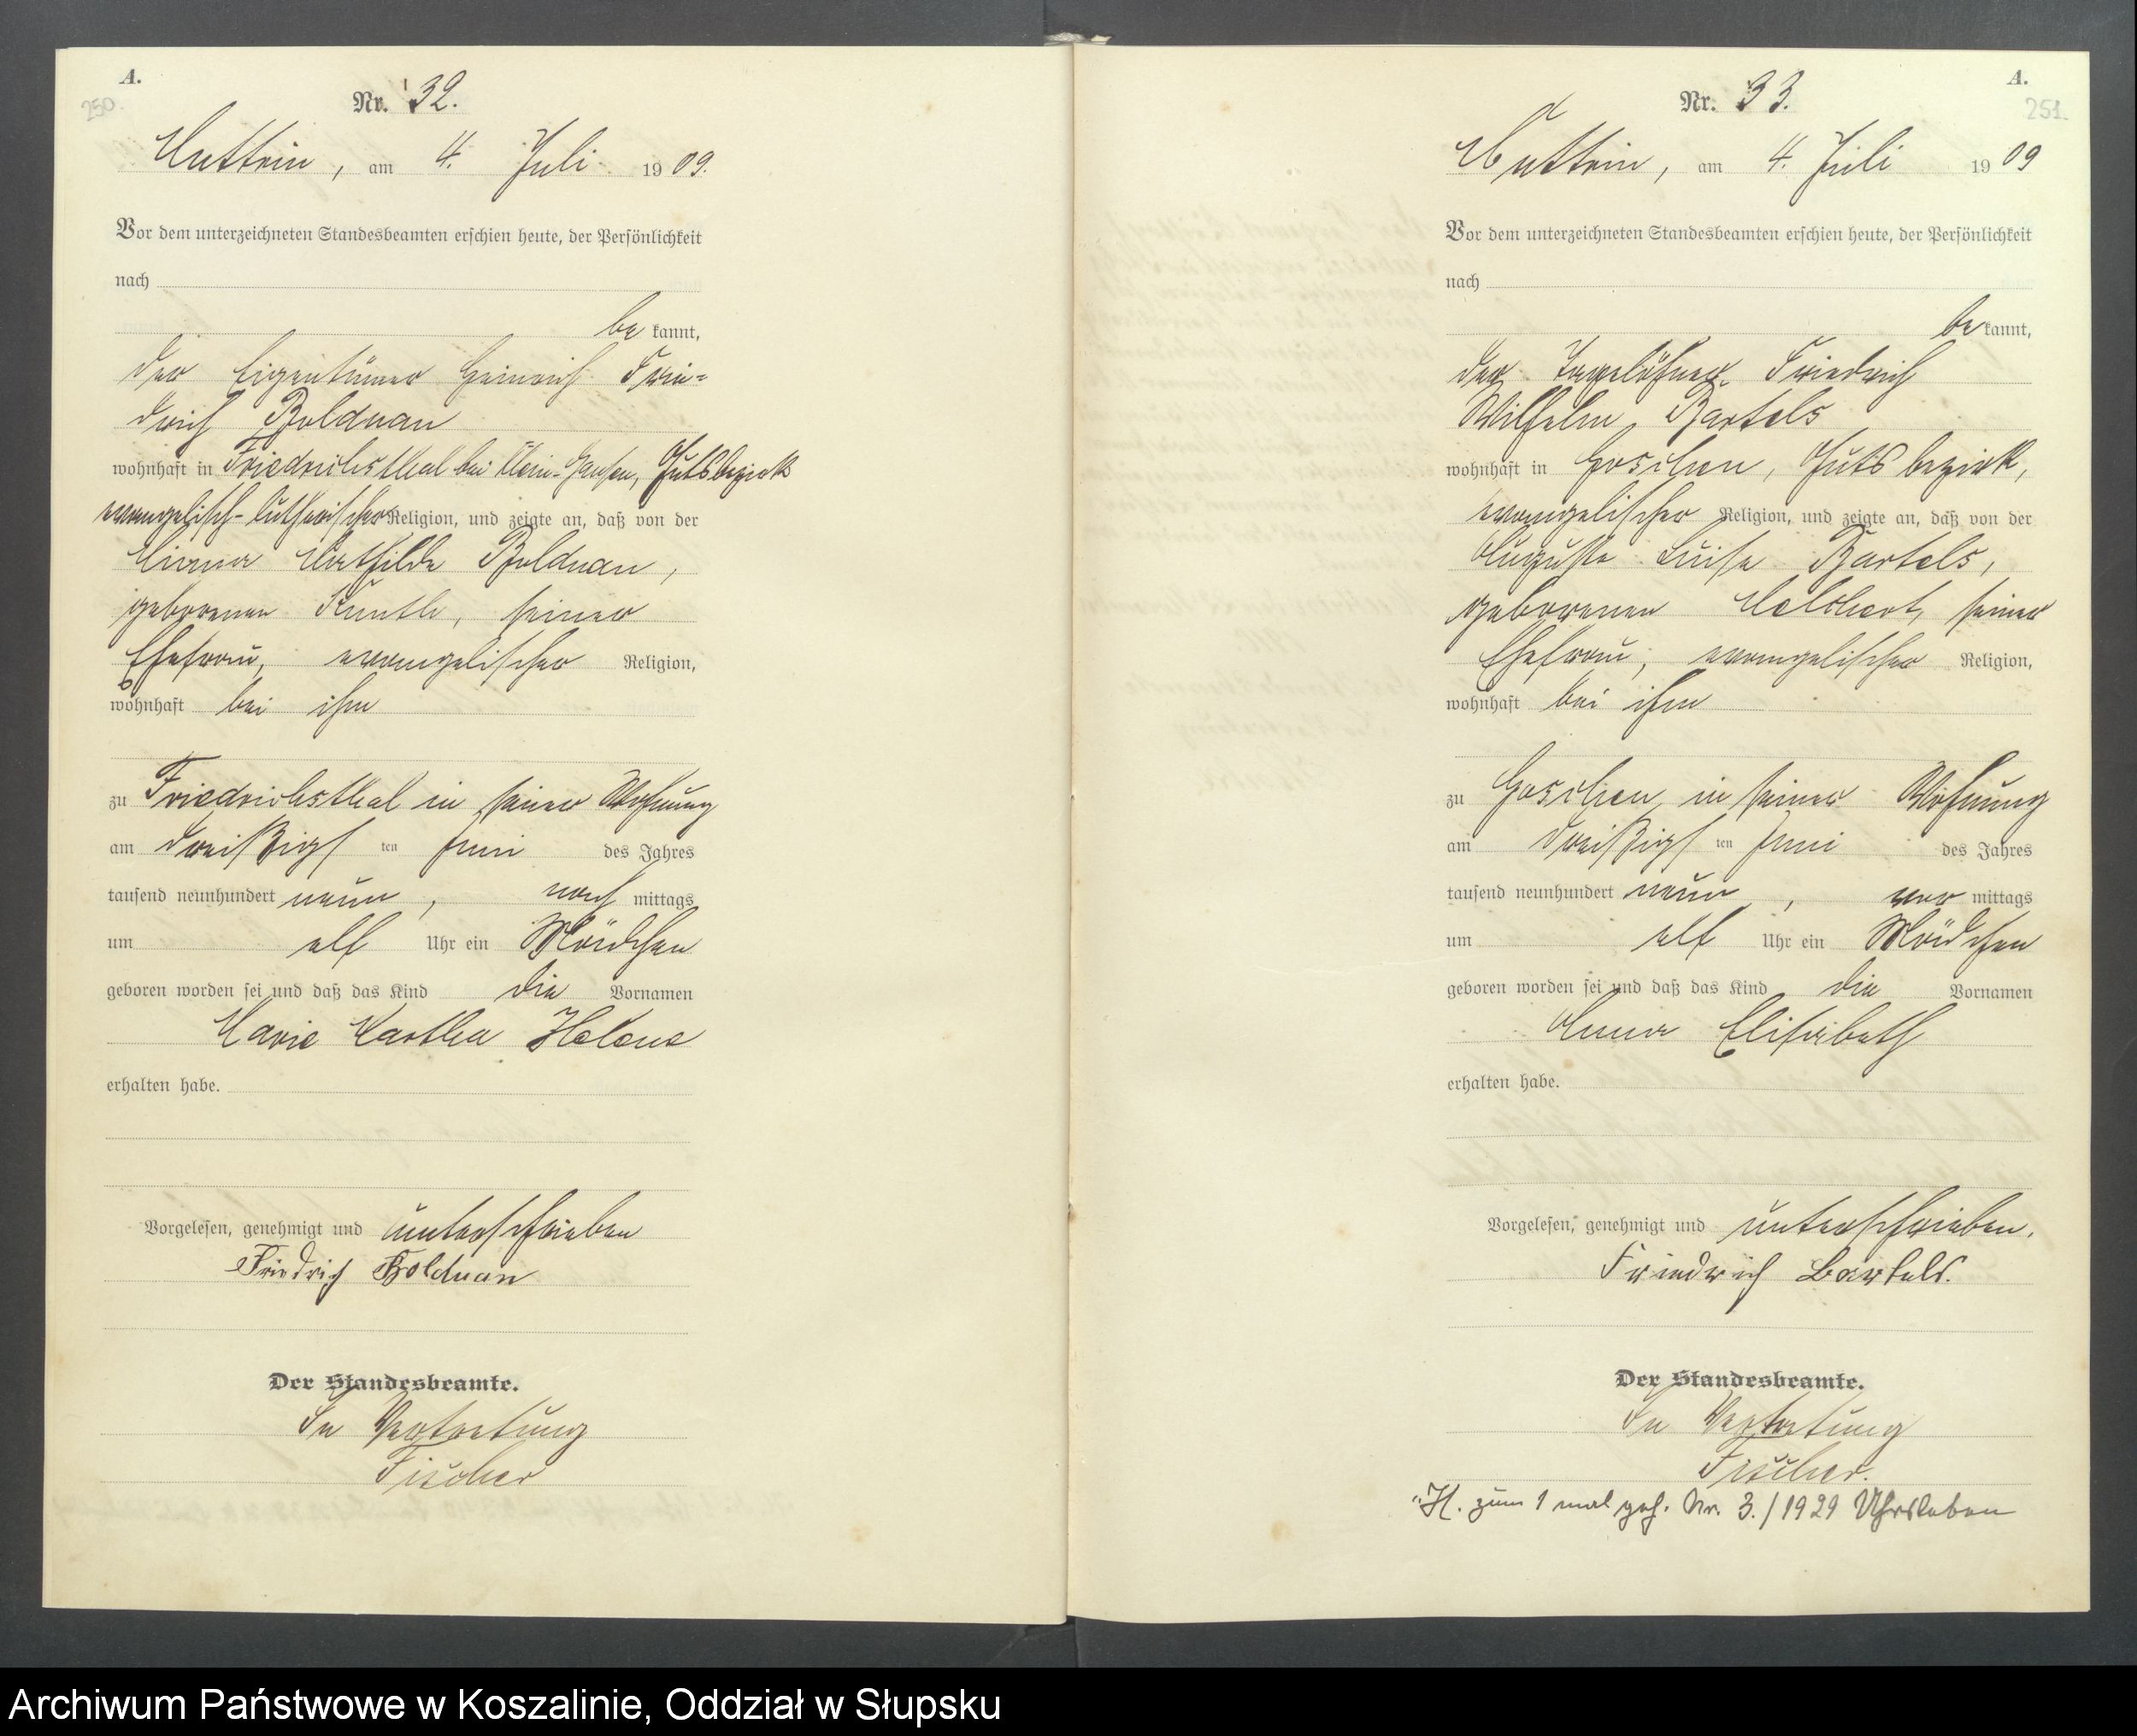 A.
250.
Nr. 32.
Muttrin, am 4. Juli 1909.
Vor dem unterzeichneten Standesbeamten erschien heute, der Persönlichkeit
nach
bekannt,
der Eigentümer Heinrich Frie=
drich Bolduan
wohnhaft in Friedrichsthal bei Klein-Gansen, Gutsbezirk
evangelisch-lutherischer Religion, und zeigte an, daß von der
Minna Mathilde Bolduan,
geborenen Kunth, seiner
Ehefrau, evangelischer Religion,
wohnhaft bei ihm
zu Friedrichsthal in seiner Wohnung
am dreißigsten Juni des Jahres
tausend neunhundert neun, nachmittags
um elf Uhr ein Mädchen
geboren worden sei und daß das Kind die Vornamen
Marie Martha Helene
erhalten habe.
Vorgelesen, genehmigt und unterschrieben
Friedrich Bolduan
Der Standesbeamte.
In Vertretung
Fischer
A.
251.
Nr. 33.
Muttrin, am 4. Juli 1909
Vor dem unterzeichneten Standesbeamten erschien heute, der Persönlichkeit
nach
bekannt,
der Tagelöhner Friedrich
Wilhelm Bartels
wohnhaft in Goschen, Gutsbezirk,
evangelischer Religion, und zeigte an, daß von der
Auguste Luise Bartels,
geborenen Melchert, seiner
Ehefrau, evangelischer Religion,
wohnhaft bei ihm
zu Goschen in seiner Wohnung
am dreißigsten Juni des Jahres
tausend neunhundert neun, vormittags
um elf Uhr ein Mädchen
geboren worden sei und daß das Kind die Vornamen
Anna Elisabeth
erhalten habe.
Vorgelesen, genehmigt und unterschrieben.
Friedrich Bartels.
Der Standesbeamte.
In Vertretung
Fischer.
H. zum 1 mal geh. Nr. 3./1929 Uhrsleben
Archiwum Państwowe w Koszalinie, Oddział w Słupsku